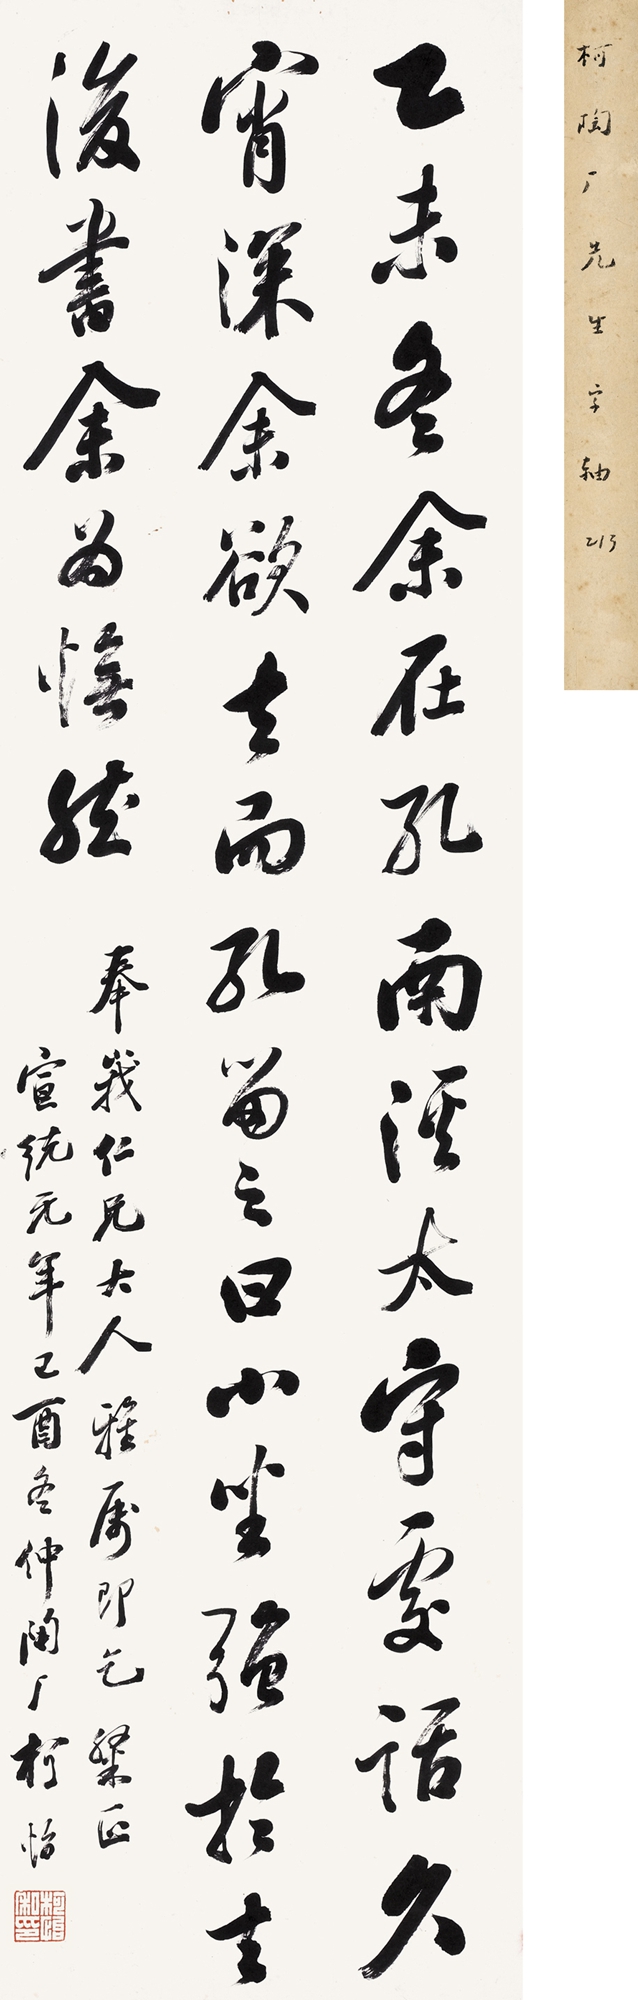 柯陶厂先生字軸 213
乙未冬余在孔南溪太守處話久
宵深余欲去而孔留之曰小坐強於去
後書余為憮然
奉峩仁兄大人雅屬即乞 正
宣統元年己酉冬仲陶厂柯怡